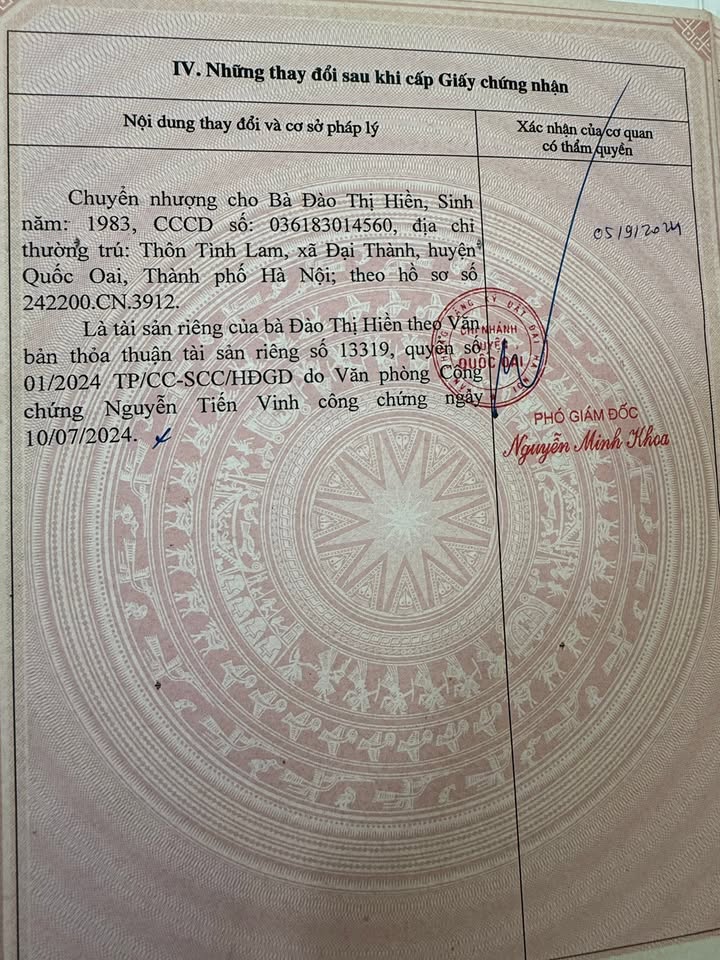 IV. Những thay đổi sau khi cấp Giấy chứng nhận
Nội dung thay đổi và cơ sở pháp lý
Xác nhận của cơ quan
có thẩm quyền
Chuyển nhượng cho Bà Đào Thị Hiền, Sinh
năm: 1983, CCCD số: 036183014560, địa chỉ
thường trú: Thôn Tình Lam, xã Đại Thành, huyện
Quốc Oai, Thành phố Hà Nội; theo hồ sơ số
242200.CN.3912.
Là tài sản riêng của bà Đào Thị Hiền theo Văn
bản thỏa thuận tài sản riêng số 13319, quyển số
01/2024 TP/CC-SCC/HĐGD do Văn phòng Công
chứng Nguyễn Tiến Vinh công chứng ngày
10/07/2024.
05/9/2024
CHI NHÁNH
HUYỆN
QUỐC OAI
PHÓ GIÁM ĐỐC
Nguyễn Minh Khoa